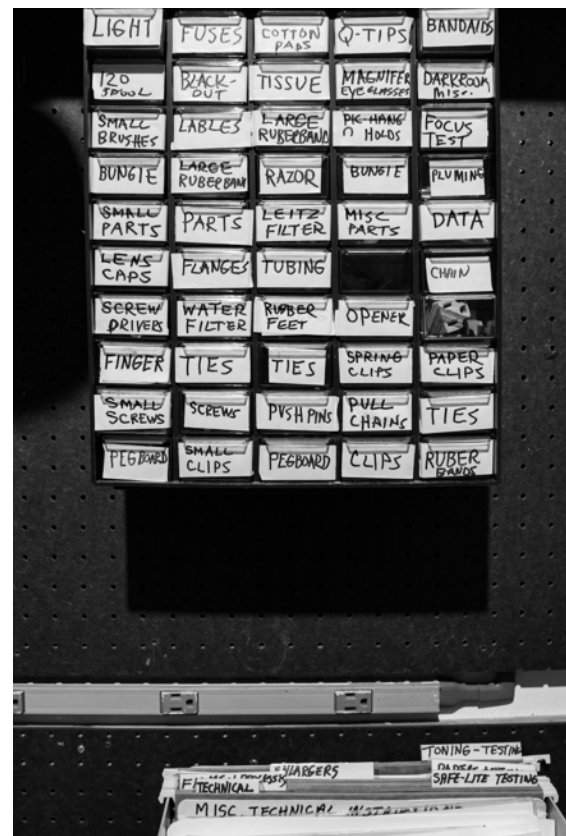 LIGHT
FUSES
COTTON
PADS
Q-TIPS
BANDAIDS
120
SPOOL
BLACK-
OUT
TISSUE
MAGNIFER
EYEGLASSES
DARKROOM
MISC.
SMALL
BRUSHES
LABLES
LARGE
RUBERBAND
PIC-HANG
HOLDS
FOCUS
TEST
BUNGIE
LARGE
RUBERBAND
RAZOR
BUNGIE
PLUMING
SMALL
PARTS
PARTS
LEITZ
FILTER
MISC
PARTS
DATA
LENS
CAPS
FLANGES
TUBING
CHAIN
SCREW
DRIVERS
WATER
FILTER
RUBBER
FEET
OPENER
FINGER
TIES
TIES
SPRING
CLIPS
PAPER
CLIPS
SMALL
SCREWS
SCREWS
PUSHPINS
PULL
CHAINS
TIES
PEGBOARD
SMALL
CLIPS
PEGBOARD
CLIPS
RUBER
BANDS
TONING-TESTING
ENLARGERS
SAFE-LITE TESTING
TECHNICAL
MISC. TECHNICAL INSTRUCTIONS